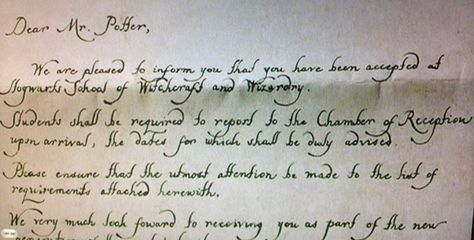 Dear Mr. Potter,
We are pleased to inform you that you have been accepted at
Hogwarts School of Witchcraft and Wizardry.
Students shall be required to report to the Chamber of Reception
upon arrival, the dates for which shall be duly advised.
Please ensure that the utmost attention be made to the list of
requirements attached herewith.
We very much look foward to receiving you as part of the new